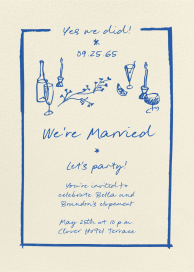 Yes we did!
09.25.65
We're Married
Let's party!
You're invited to
celebrate Bella and
Brandon's elopement
May 25th at 10 p.m.
Clover Hotel Terrace